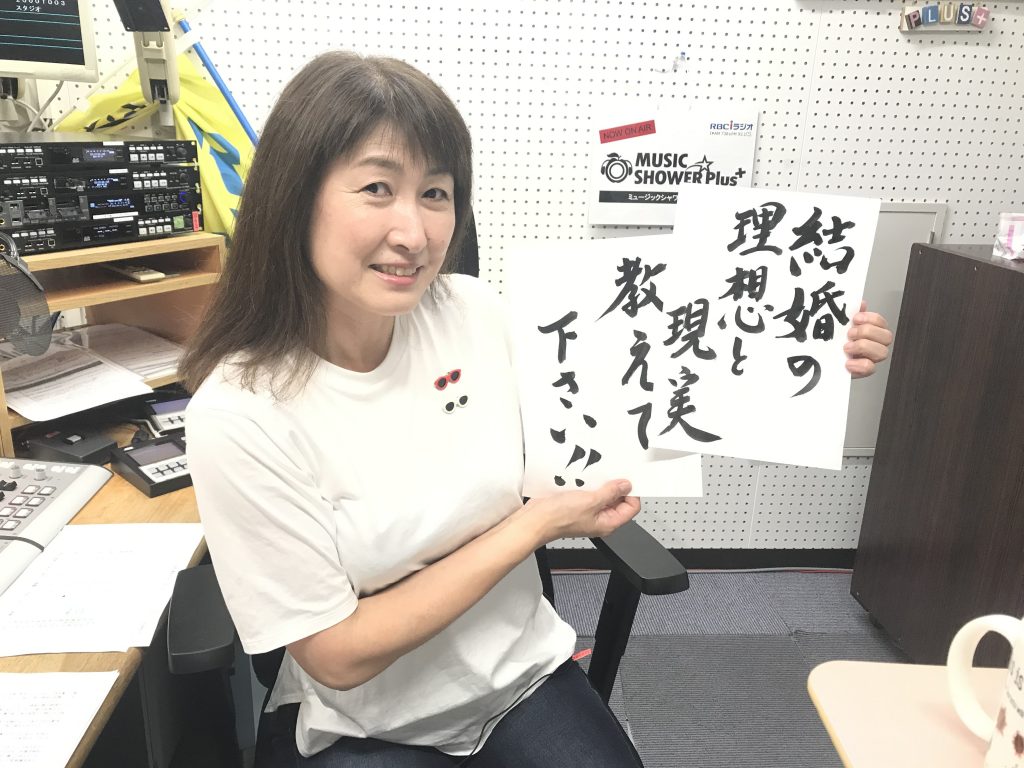 スタジオ
PLUS+
NOW ON AIR
RBCiラジオ
MUSIC
SHOWER Plus+
ミュージックシャワ
結婚の
理想と
現実
教えて
下さい!!